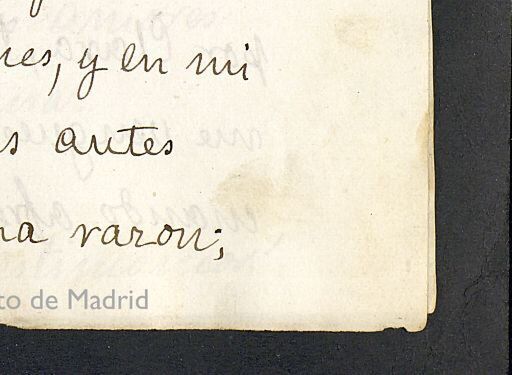 es, y en mi
s antes
na razon;
to de Madrid